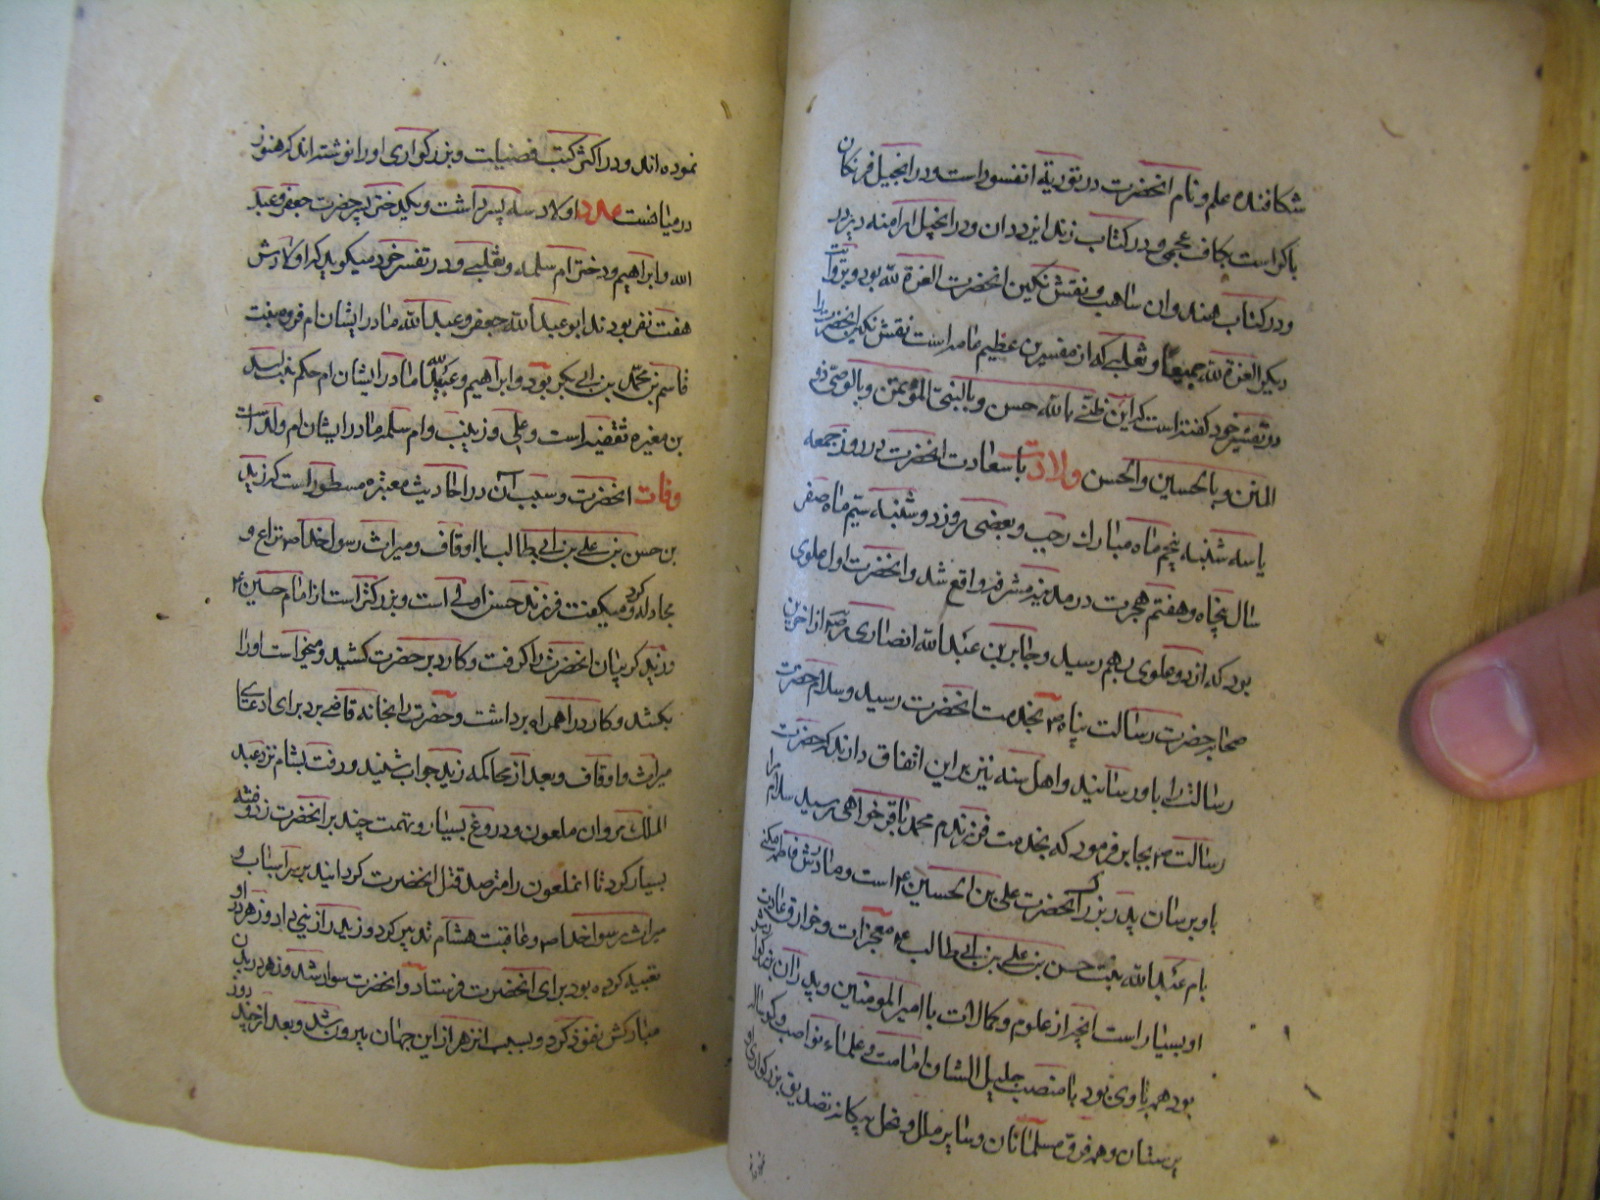 شکافنده علم و نام انحضرت در توریة انفسوراست و در انجیل فرنکان
باکراست بکاف عجمی و در کتاب زند ایزددان و در انجیل ارامنه دیزدر
و در کتاب هند وان شاهب و نقش نکین انحضرت العزة لله بود و بروایت
دیکر العزة لله جمیعا و ثعلبی که از مفسرین عظیم عامه است نقش نکین انحضرت را
در تفسیر خود کفته است که این ظنی بالله حسن و بالنبی المؤتمن و بالوصی ذی
المنن و بالحسین والحسن ولادت با سعادت انحضرت در روز جمعه
یا سه شنبه پنجم ماه مبارك رجب و بعضی روز دوشنبه سیم ماه صفر
سال پنجاه و هفتم هجرت در مدینه مشرفه واقع شد و انحضرت اول علوی
بود که از دو علوی بهم رسید و جابر بن عبد الله انصاری رض از اخرین
صحابه حضرت رسالت پناه ص بخدمت انحضرت رسید و سلام حضرت
رسالت را باو رسانید و اهل سنه نیز براین اتفاق دارند که حضرت
رسالت ص بجابر فرمود که بخدمت فرزندم محمد باقر خواهی رسید سلام مرا
باو برسان پدر بزرکـ انحضرت علی بن الحسین ع است و مادرش فاطمه مکنی
بام عبد الله بنت حسن بن علی بن ابی طالب ع معجزات و خوارق عادات
او بسیار است انچه از علوم و کمالات با امیر المومنین و پدران بزرکوارش
بود همه باوی بود با منصب جلیل الشان امامت و علماء نواصب و کوساله
پرستان و همه فرق مسلمانان و سایر ملل و نحل بیکانه تصدیق بزرکواری او
نموده اند و در اکثر کتب فضیلت و بزرکواری او را نوشته اند که هنوز
در میانست عدد اولاد سه پسر داشت و یکدختر پسر حضرت جعفر و عبد
الله و ابراهیم و دختر ام سلمه و ثعلبی در تفسیر خود میکوید که اولادش
هفت نفر بودند ابو عبد الله جعفر و عبد الله مادر ایشان ام فروه بنت
قاسم بن محمد بن ابی بکر بود و ابراهیم و عبید الله مادر ایشان ام حکم بنت اسد
بن مغیره ثقفیه است و علی و زینب و ام سلمه مادر ایشان ام ولد است
وفات انحضرت و سبب آن در احادیث معتبره مسطور است که زید
بن حسن بن علی بن ابی طالب با اوقاف و میراث رسول خدا ص نزاع و
مجادله کرد و میکفت فرزند حسن اولی است و بزرکتر است از امام حسین ع
و زید کریبان انحضرت را کرفت و کارد بر حضرت کشید و میخواست اورا
بکشد و کارد را همراه برداشت و حضرت را بخانه قاضی برد برای ادعای
میراث و اوقاف و بعد از محاکمه زید جواب شنید و رفت بشام نزد عبد
الملك مروان ملعون و دروغ بسیار و تهمت چند بر انحضرت زد و فتنه
بسیار کرد تا انملعون را متر صد قتل انحضرت کردانید بر سر اسباب و
میراث رسول خدا ص و عاقبت هشام تدبیر کرد و زید را زینی داد و زهر در او
تعبیه کرده بود برای انحضرت فرستاد و انحضرت سوار شد و زهر در بدن
مبارکش نفوذ کرد و بسبب انزهر از این جهان بیرون شد و بعد از چند روز